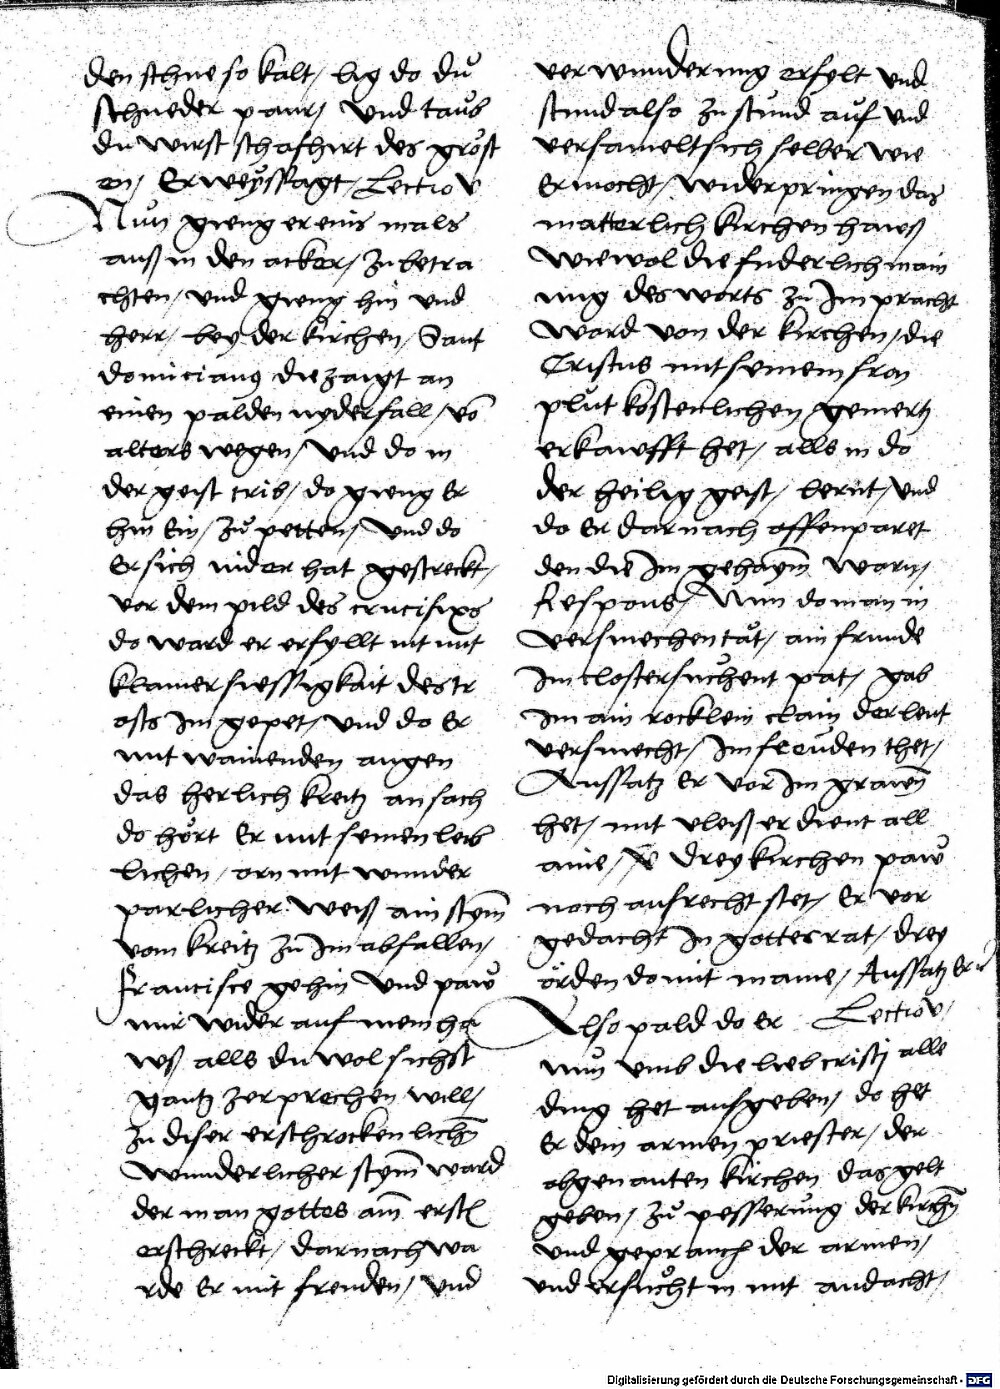 den schne so kalt / lig do dů
schneder paur / Vnd taůb
du wirst schafhirt des gröst
en / Er weyssagt / Lectio v
Nůn gieng er eins mals
auß in den acker / zu betra
chten / vnd gieng hin vnd
herr / bey der kirchen / Sant
domicianꝰ die zaigt an
einen palden nyderfall / võ
alters wegen / Vnd do in
der geist trib / do gieng Er
hin Ein / zů petten / Vnd do
Er sich nider hat gestreckt /
vor dem pild des crucifixs
do ward er erfyllt nit mit
klainer siessigkait des tr
osts Im gepet / vnd do Er
mit wainenden augen
das herlich kreitz ansach
do hört Er mit seinen leib
lichen / orn mit wunder
parlicher weiß ain stym̄
vom kreitz zu Im abfallen /
francisce gehin Vnd paw̆
mir wider auf mein ha
wß alls du wol sichst
gantz zerprechen will /
zu diser erschrockenlichn̄
wunderlicher stym̄ ward
der man gottes am̄ erstͤ
erschreckt / darnach wa
rde Er mit freuden / vnd
verwunderung erfylt vnd
stund also zu stůnd aůf vnd
versamelt sich selber wie
Er mocht / widerpringen das
matterlich kirchen hawß
wiewol die fuderlich main
ung des worts zu Im pracht
ward von der kirchen / die
Cristus mit seinem fron
plůt kostenlichen gemertz
erkaufft het / alls in do
der heilig geist / bericht / vnd
do Er darnach offenparet
den die Im gehaym̄ warn /
Respons / Nun do man in
versmechen tăt / ain frunde
Im closter sůchent pat / gab
Im ain rocklein clain der leut
versmecht / Im freůden thet /
Aussatz Er vor Im grawen̄
het / mit vleiß er dient all
aine / drey kirchen paw̆
noch aufrecht stet / Er vor
gedacht In gottes rat / drey
örden domit maine / Aussatz Er
Also pald do Er Lectio v /
nun vmb die lieb cristj alle
ding het aufgeben / do het
Er dem armen priester / der
obgenanten kirchen das gelt
geben / zů pesserůng der kirchn̄
vnd geprauch der armen /
vnd ersůcht in mit andacht /
Digitalisierung gefördert durch die Deutsche Forschungsgemeinschaft - DFG